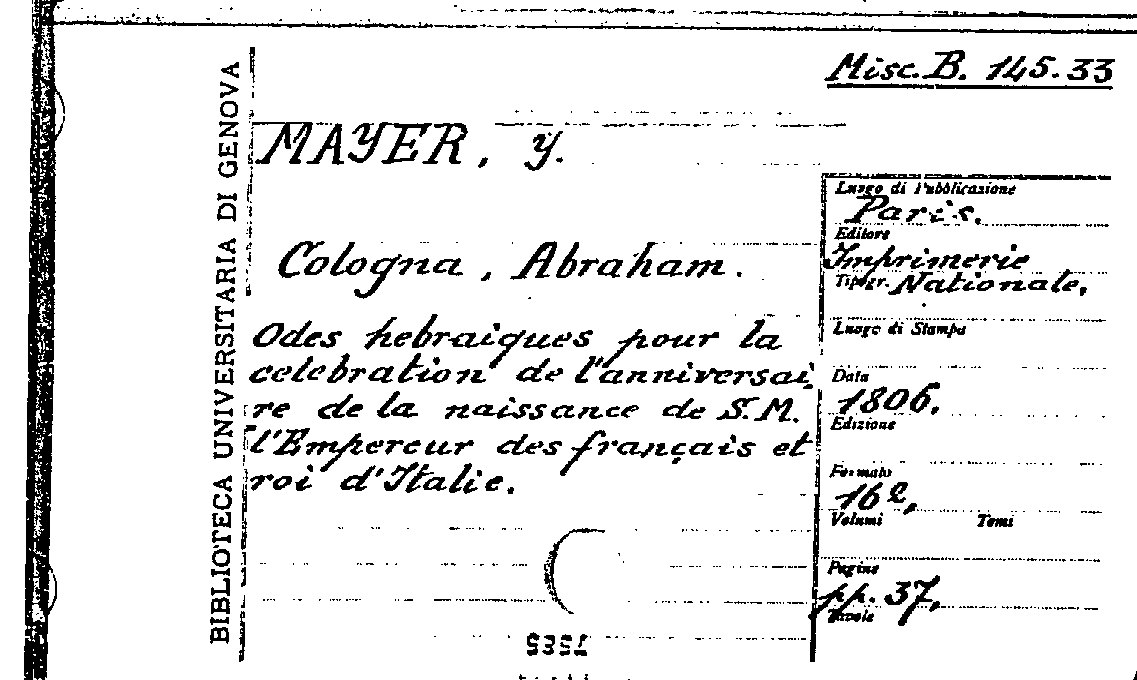 Misc. B. 145.33
BIBLIOTECA UNIVERSITARIA DI GENOVA
MAYER, y.
Cologna, Abraham.
Odes hebraiques pour la
celebration de l'anniversai
re de la naissance de S.M.
l'Empereur des français et
roi d'Italie.
Luogo di Pubblicazione
Paris.
Editore
Imprimerie
Tipogr. Nationale,
Luogo di Stampa
Data
1806.
Edizione
Formato
16º,
Volumi Tomi
Pagine
pp. 37,
Tavole